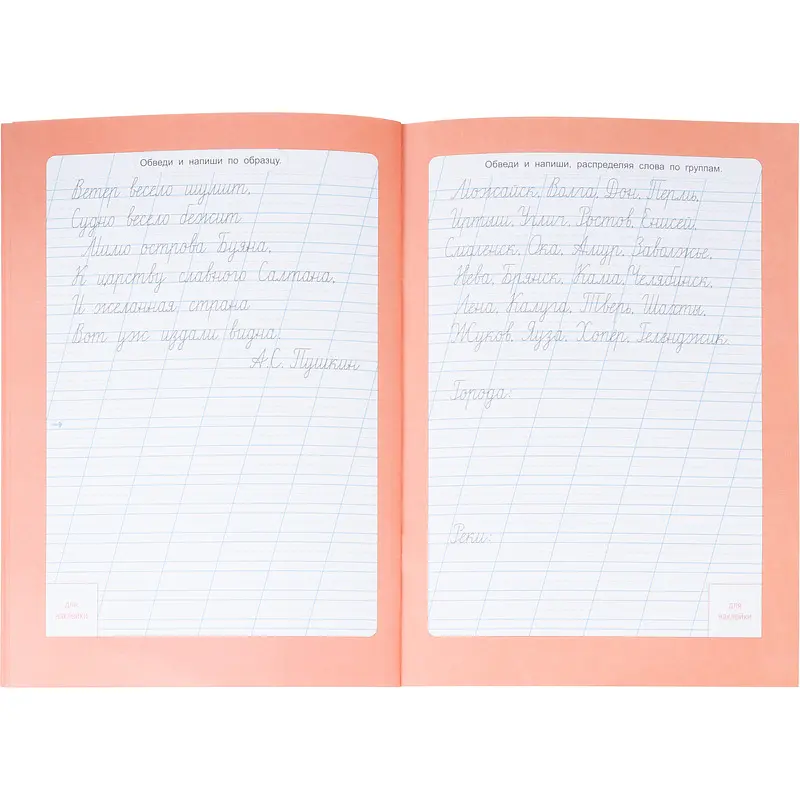 Обведи и напиши по образцу.
Ветер весело шумит,
Судно весело бежит
Мимо острова Буяна,
К царству славного Салтана,
И желанная страна
Вот уж издали видна.
А.С. Пушкин
для
наклейки
Обведи и напиши, распределяя слова по группам.
Можайск, Волга, Дон, Пермь,
Иртыш, Углич, Ростов, Енисей,
Смоленск, Ока, Амур, Заволжье,
Нева, Брянск, Кама, Челябинск,
Лена, Калуга, Тверь, Шахты,
Жуков, Яуза, Хопер, Геленджик.
Города:
Реки:
для
наклейки